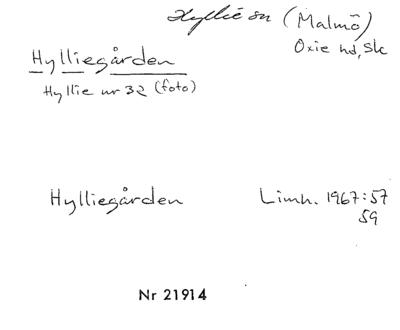 Hyllie sn (Malmö)
Oxie hd, Sk
Hylliegården
Hyllie nr 32 (foto)
Hylliegården Limh. 1967:57
59
Nr 21914